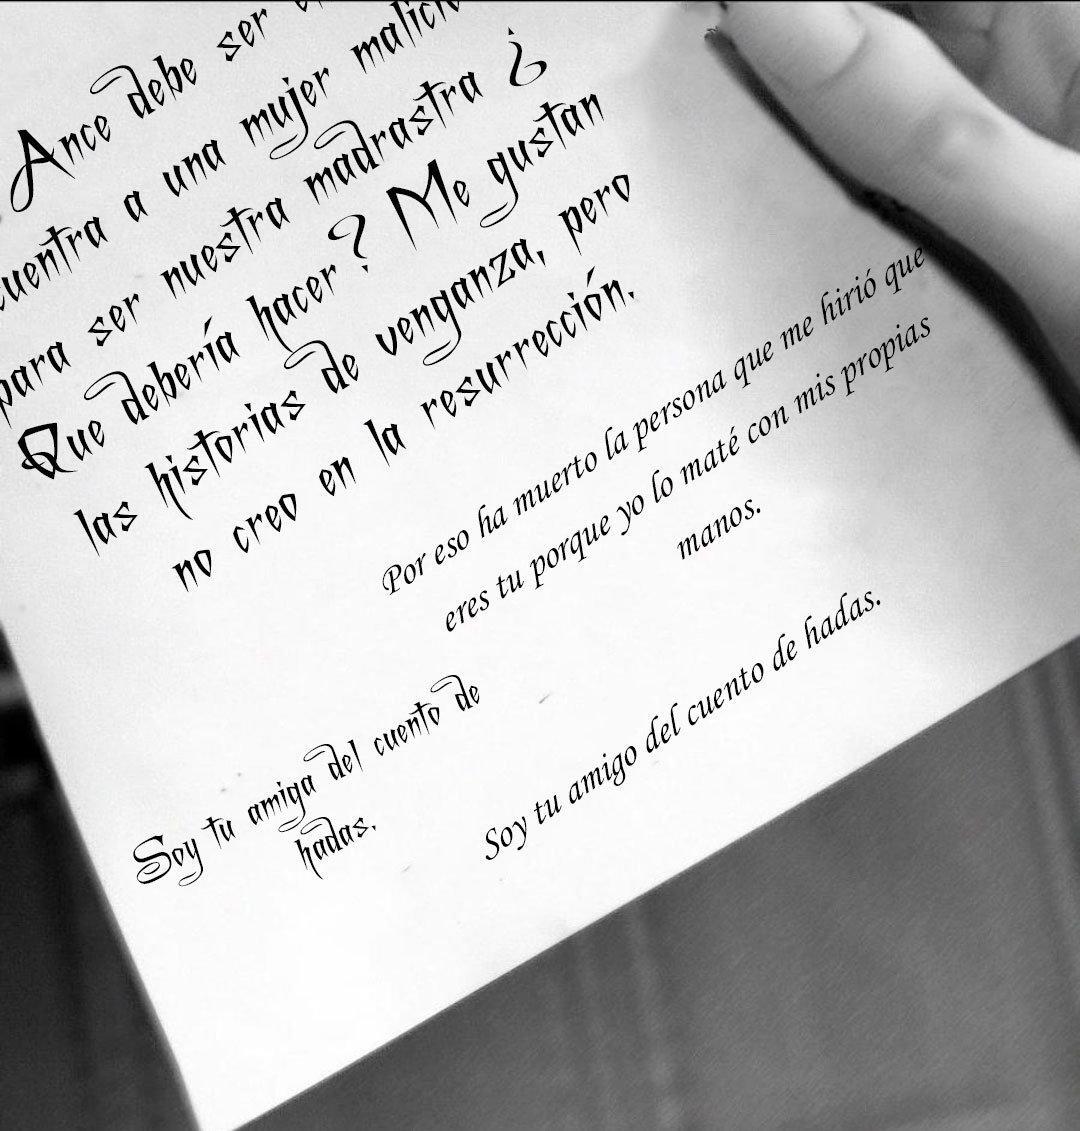 Ance debe ser
cuentra a una mujer
para ser nuestra madrastra ¿
Que debería hacer? Me gustan
las historias de venganza, pero
no creo en la resurrección.
Por eso ha muerto la persona que me hirió que
eres tu porque yo lo maté con mis propias
manos.
Soy tu amiga del cuento de
hadas.
Soy tu amigo del cuento de hadas.